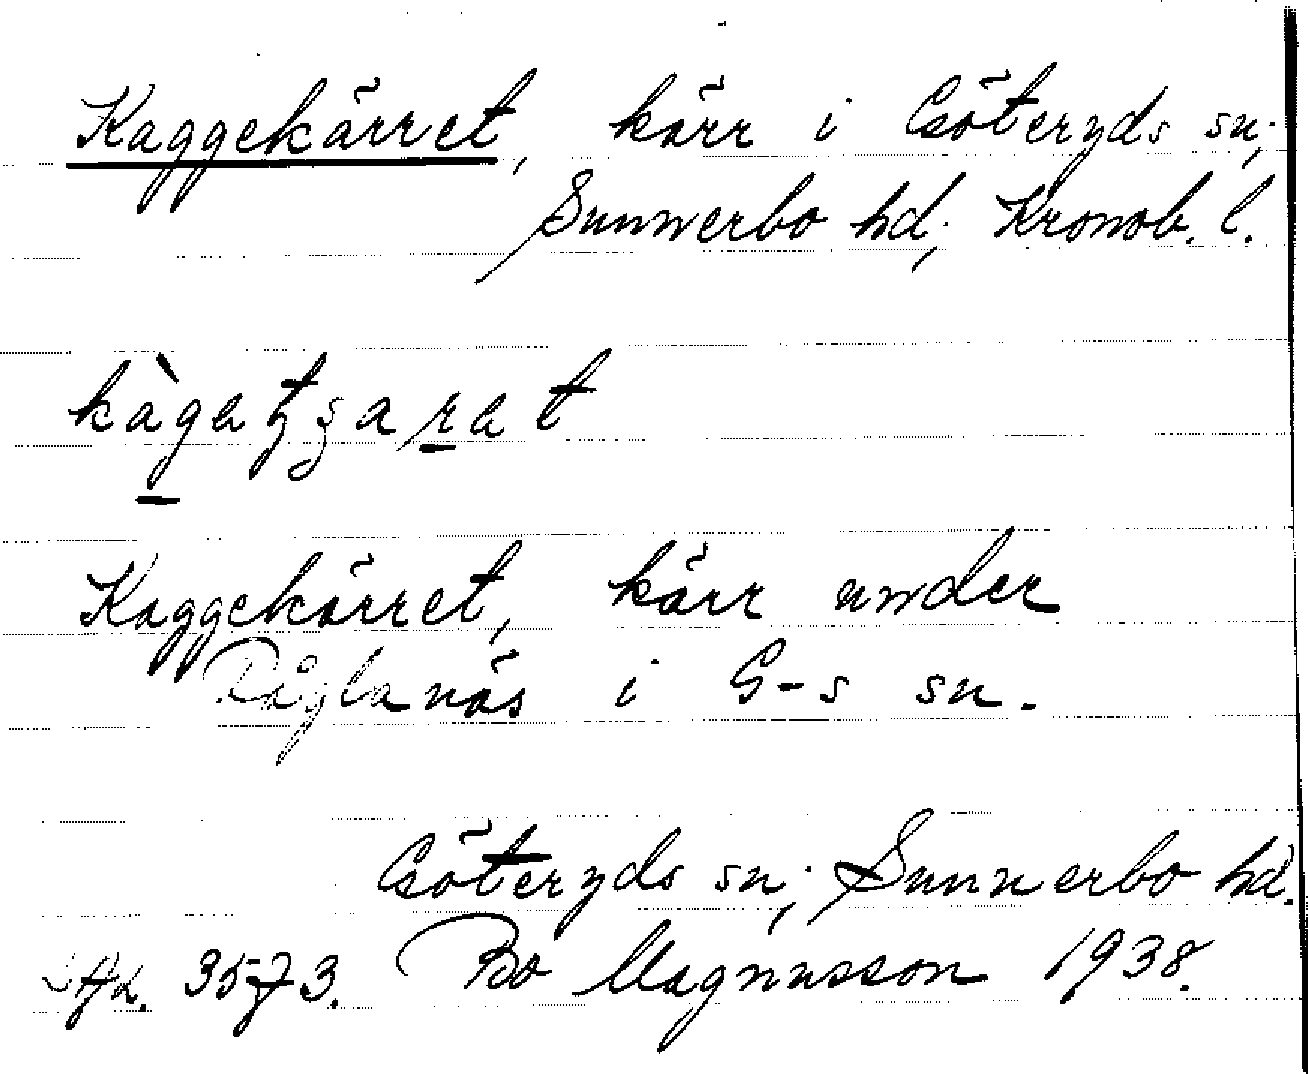 Kaggekärret, kärr i Göteryds sn,
Sunnerbo hd, Kronob. l.
Kaggekärret, kärr under
Råglanäs i G-s sn.
Göteryds sn, Sunnerbo hd.
3573. Bo Magnusson 1938.